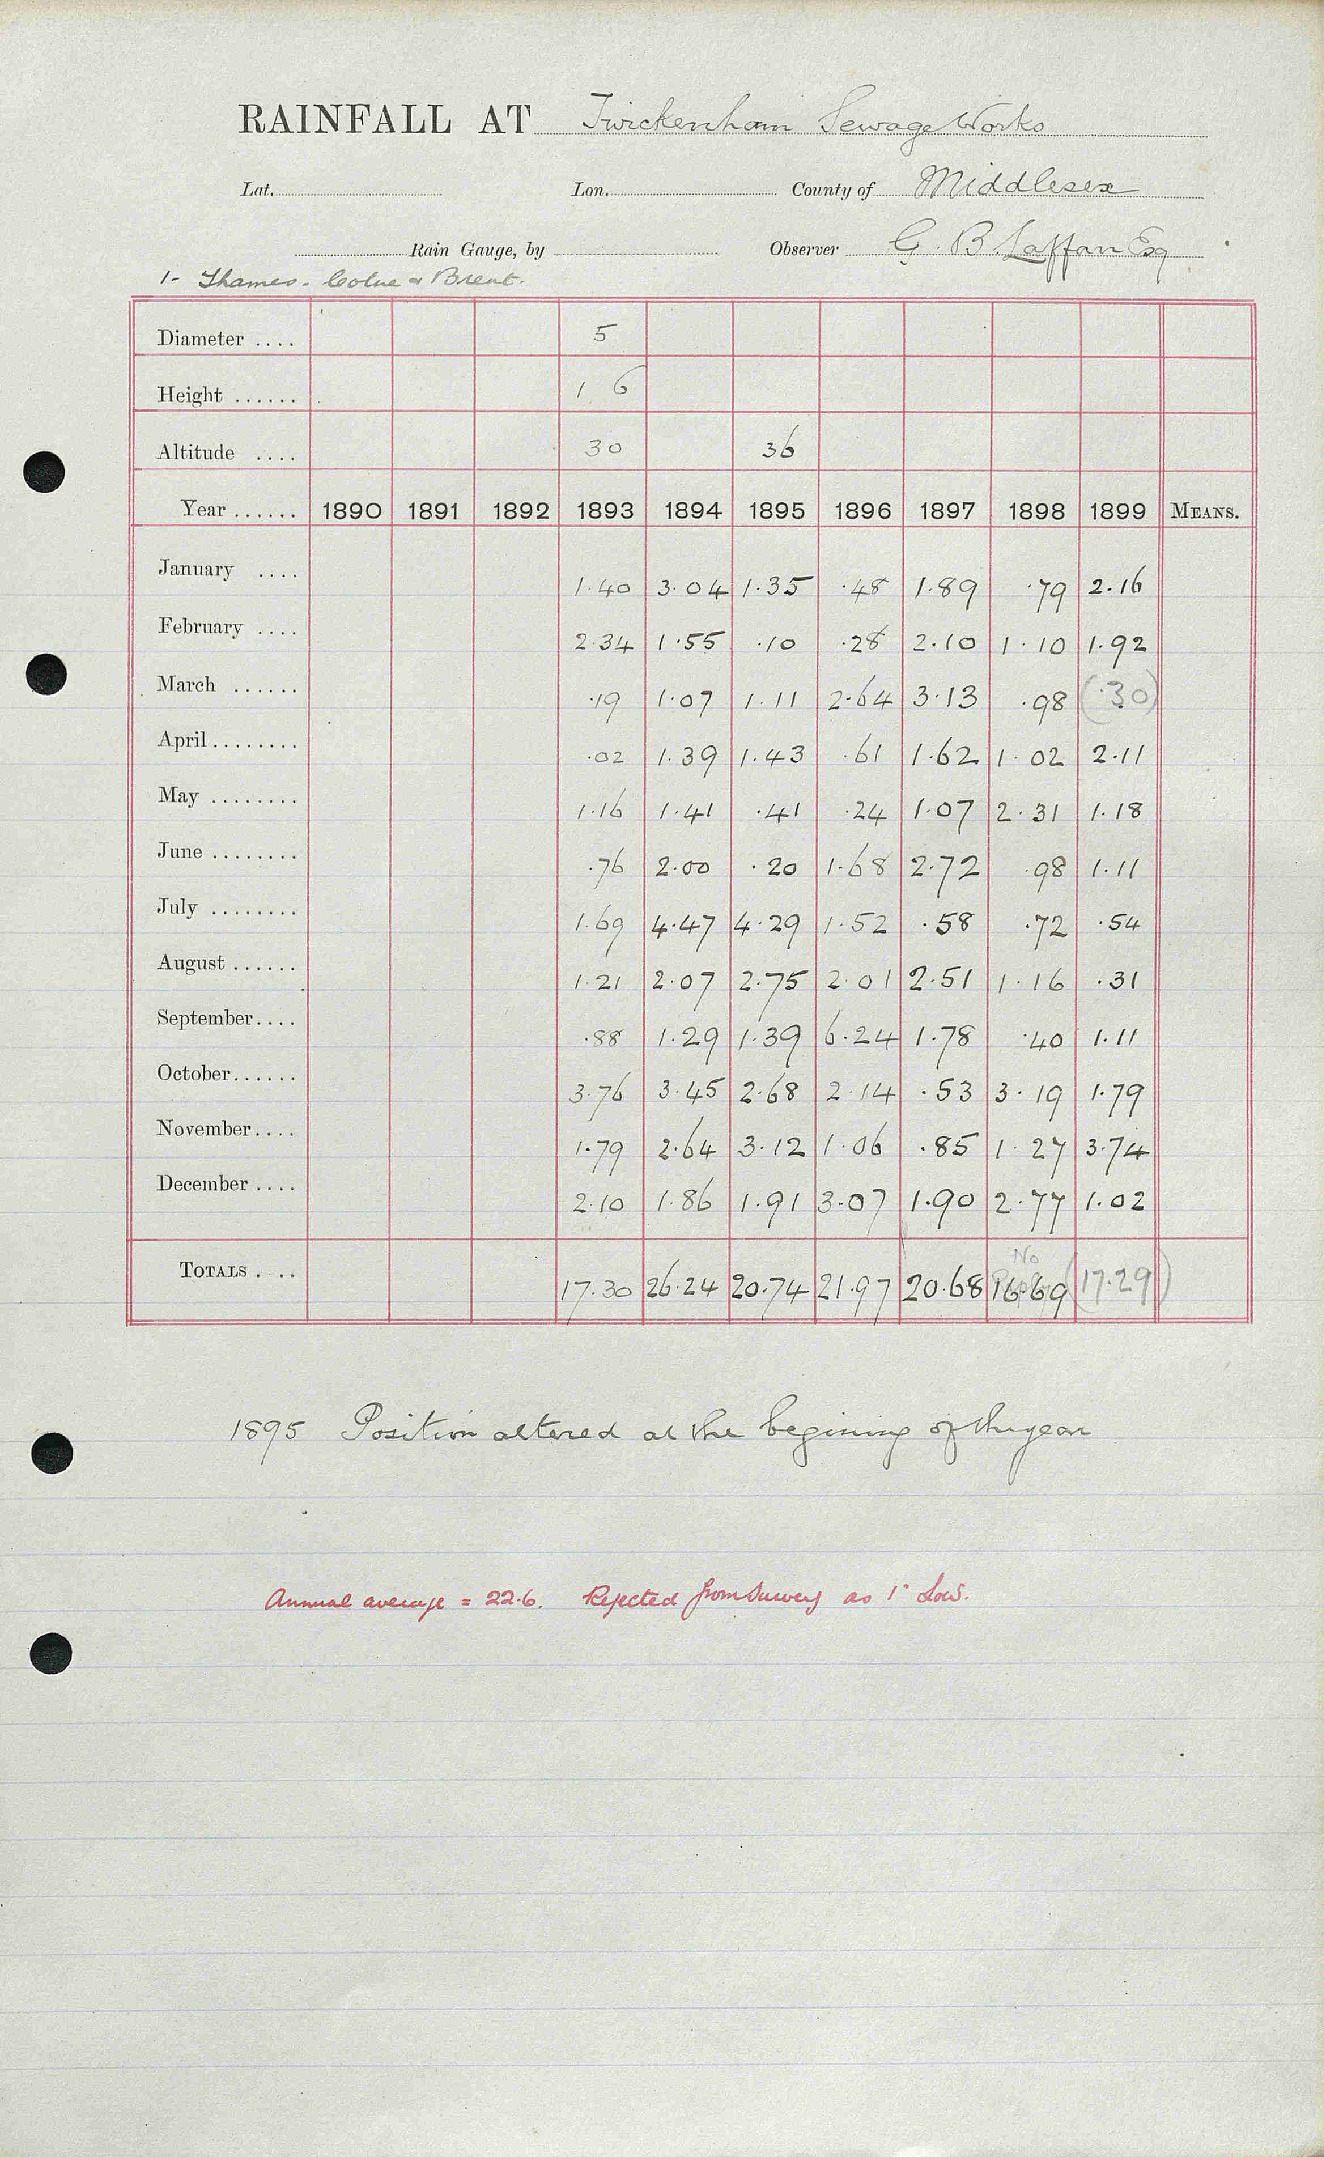 RAINFALL AT Twickenham Sewage Works
Lat. Lon. County of Middlesex
Rain Gauge, by Observer G. B. Laffan Esq
1- Thames. Colne & Brent.
Diameter .... 5
Height ...... 1 6
Altitude .... 30 36
Year ...... 1890 1891 1892 1893 1894 1895 1896 1897 1898 1899 MEANS.
January .... 1.40 3.04 1.35 .48 1.89 .79 2.16
February .... 2.34 1.55 .10 .28 2.10 1.10 1.92
March ...... .19 1.07 1.11 2.64 3.13 .98 (.30)
April........ .02 1.39 1.43 .61 1.62 1.02 2.11
May ........ 1.16 1.41 .41 .24 1.07 2.31 1.18
June ........ .76 2.00 .20 1.68 2.72 .98 1.11
July ........ 1.69 4.47 4.29 1.52 .58 .72 .54
August ...... 1.21 2.07 2.75 2.01 2.51 1.16 .31
September.... .88 1.29 1.39 6.24 1.78 .40 1.11
October...... 3.76 3.45 2.68 2.14 .53 3.19 1.79
November.... 1.79 2.64 3.12 1.06 .85 1.27 3.74
December .... 2.10 1.86 1.91 3.07 1.90 2.77 1.02
No
TOTALS . .. 17.30 26.24 20.74 21.97 20.68 16.69 (17.29)
1895 Position altered at the begining of the year
Annual average = 22.6. Rejected from Survey as 1" Low.